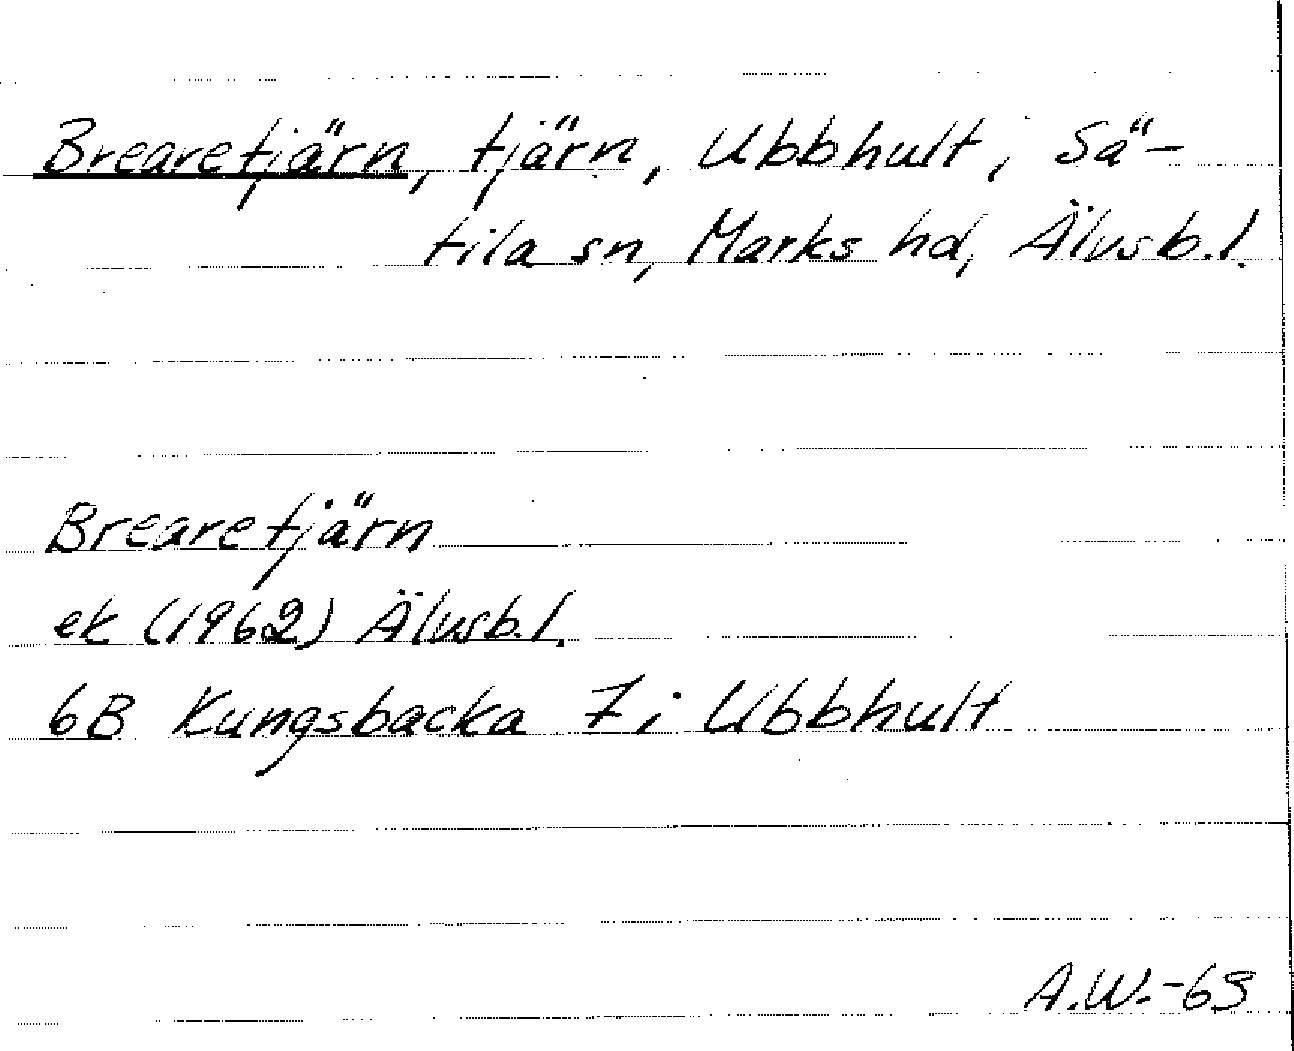 Brearetjärn, tjärn, Ubbhult, Sä-
tila sn, Marks hd, Älvsb.l.
Brearetjärn
ek (1962) Älvsb.l.
6B Kungsbacka 7i Ubbhult
A.W.-63